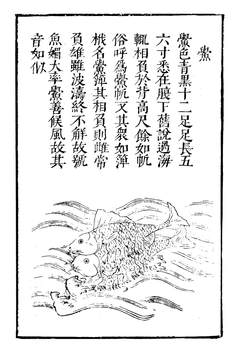 鱟
鱟色青黑十二足足長五
六寸悉在腹下舊說過海
輒相負於背高尺餘如帆
俗呼為鱟帆又其眾如簰
栰名鱟簰其相負則雌常
負雄雖波濤終不解故號
魚媚大率鱟善候風故其
音如候